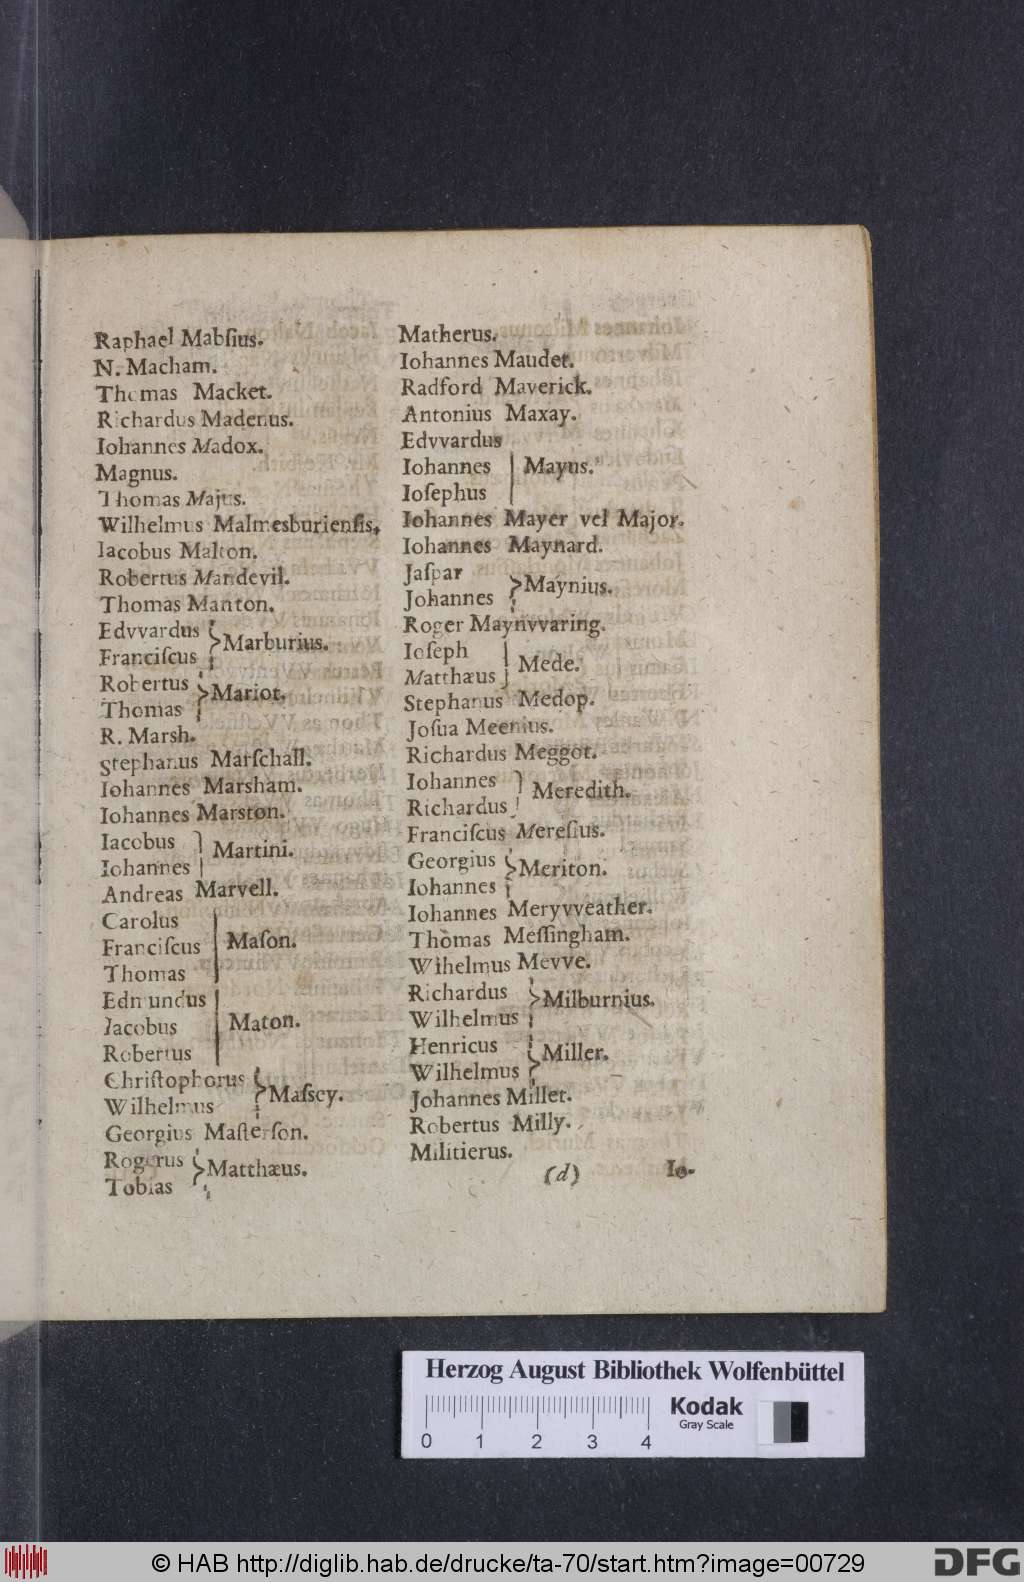 Raphael Mabſius.
N. Macham.
Thomas Macket.
Richardus Madenus.
Iohannes Madox.
Magnus.
Thomas Majus.
Wilhelmus Malmesburienſis,
Iacobus Malton.
Robertus Mandevil.
Thomas Manton.
Edvvardus
Franciſcus } Marburius.
Robertus
Thomas } Mariot.
R. Marsh.
Stephanus Marſchall.
Iohannes Marsham.
Iohannes Marston.
Iacobus
Iohannes } Martini.
Andreas Marvell.
Carolus
Franciſcus | Maſon.
Thomas
Edmundus
Jacobus | Maton.
Robertus
Chriſtophorus
Wilhelmus } Maſsey.
Georgius Maſterſon.
Rogerus
Tobias } Matthæus.
Matherus.
Iohannes Maudet.
Radford Maverick.
Antonius Maxay.
Edvvardus
Iohannes | Mayus.
Ioſephus
Iohannes Mayer vel Major.
Iohannes Maynard.
Jaſpar
Johannes } Maynius.
Roger Maynvvaring.
Ioſeph
Matthæus } Mede.
Stephanus Medop.
Joſua Meenius.
Richardus Meggot.
Iohannes
Richardus } Meredith.
Franciſcus Mereſius.
Georgius
Iohannes } Meriton.
Iohannes Meryvveather.
Thomas Meſſingham.
Wihelmus Mevve.
Richardus
Wilhelmus } Milburnius.
Henricus
Wilhelmus } Miller.
Johannes Millet.
Robertus Milly.
Militierus.
(d) Io-
Herzog August Bibliothek Wolfenbüttel
Kodak
Gray Scale
0 1 2 3 4
© HAB http://diglib.hab.de/drucke/ta-70/start.htm?image=00729
DFG